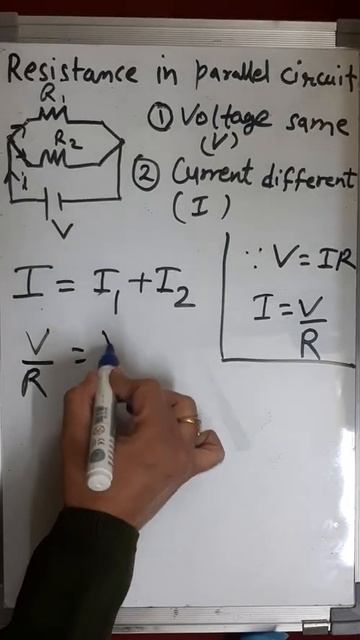 Resistance in parallel circuit
R₁
R₂
i
V
① Voltage same
(V)
② Current different
(I)
∵ V = IR
I = V/R
I = I₁ + I₂
V/R =